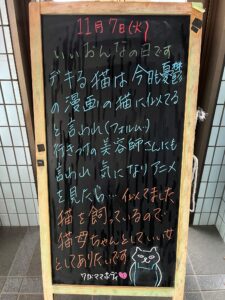 11月7日(火)
いいおんなの日です
デキる猫は今日も憂鬱
の漫画の猫に似てる
と言われ(フォルム)
行きつけの美容師さんにも
言われ 気になりアニメ
を見たら…似てました
猫を飼っているので
猫母ちゃんとしていい女
としてありたいです